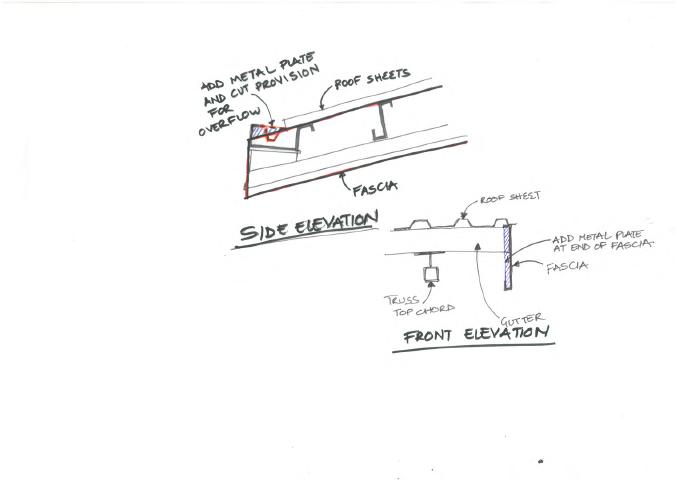 ADD METAL PLATE
AND CUT PROVISION
FOR
OVERFLOW
ROOF SHEETS
FASCIA
SIDE ELEVATION
ROOF SHEET
ADD METAL PLATE
AT END OF FASCIA.
FASCIA
TRUSS
TOP CHORD
GUTTER
FRONT ELEVATION